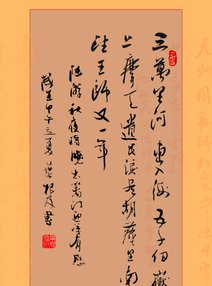 三萬里河東入海五千仞嶽
上摩天遺民淚盡胡塵里南
望王師又一年
陸游秋夜將曉出籬門迎涼有感
歲在甲午夏書